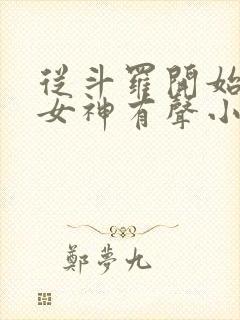 從斗羅開始
女神有聲小
鄭夢九